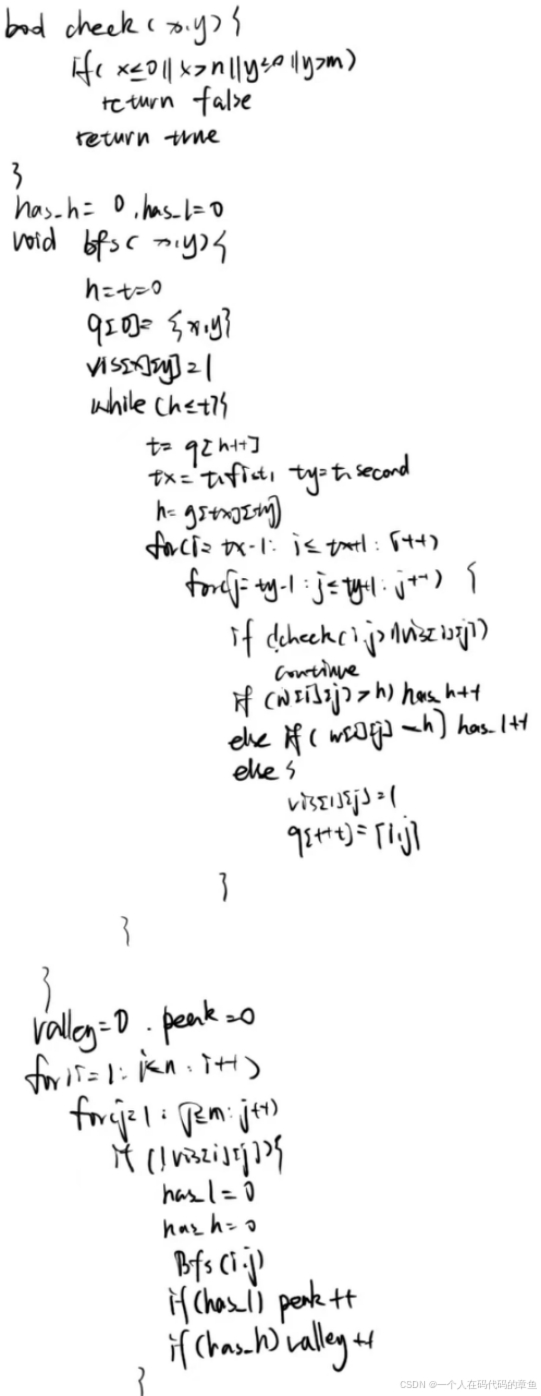 bool check(x,y){
if(x≤0||x>n||y≤0||y>m)
return false
return true
}
has_h= 0,has_l=0
void bfs(x,y){
h=t=0
q[0]= {x,y}
vis[x][y]=1
while(h≤t){
t= q[h++]
tx= t.first, ty=t.second
h= g[tx][ty]
for(i= tx-1: i≤ tx+1: i++)
for(j= ty-1: j≤ty+1: j++) {
if (!check(i,j)||vis[i][j])
continue
if (w[i][j]>h) has_h++
else if( w[i][j] <h) has_l++
else {
vis[i][j]=1
q[++t]= {i,j}
}
}
}
valley=0 . peak=0
for(i=1: i<n: i++)
for(j=1: j≤m: j++)
if (!vis[i][j]){
has_l=0
has_h=0
Bfs(i,j)
if(has_l) peak++
if(has_h) valley++
}
CSDN @一个人在码代码的章鱼